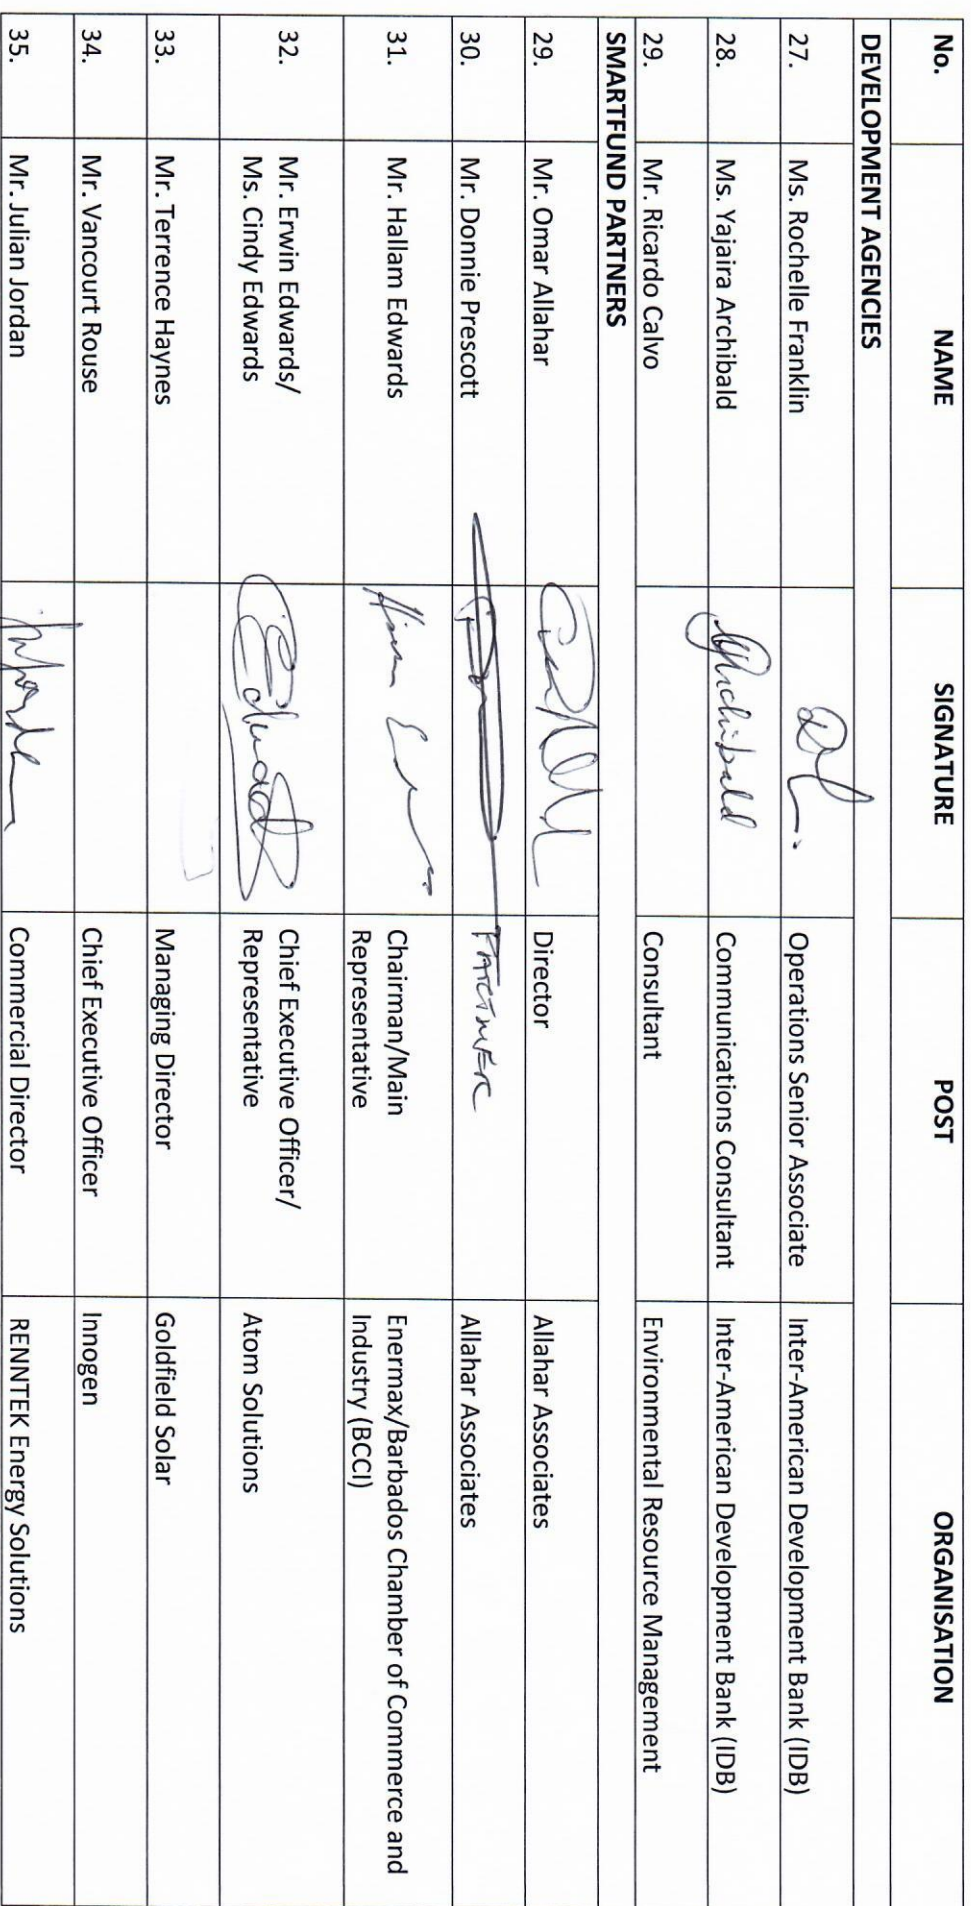 No. NAME SIGNATURE POST ORGANISATION
DEVELOPMENT AGENCIES
27. Ms. Rochelle Franklin Operations Senior Associate Inter-American Development Bank (IDB)
28. Ms. Yajaira Archibald YArchibald Communications Consultant Inter-American Development Bank (IDB)
29. Mr. Ricardo Calvo Consultant Environmental Resource Management
SMARTFUND PARTNERS
29. Mr. Omar Allahar Director Allahar Associates
30. Mr. Donnie Prescott PARTNER Allahar Associates
31. Mr. Hallam Edwards Chairman/Main Enermax/Barbados Chamber of Commerce and
Representative Industry (BCCI)
32. Mr. Erwin Edwards/ Chief Executive Officer/
Ms. Cindy Edwards Representative Atom Solutions
33. Mr. Terrence Haynes Managing Director Goldfield Solar
34. Mr. Vancourt Rouse Chief Executive Officer Innogen
35. Mr. Julian Jordan Commercial Director RENNTEK Energy Solutions